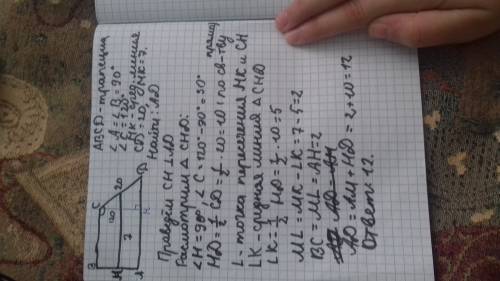 ABCD - трапеция
∠A = ∠B = 90°
∠C = 120°
MK - сред. линия
CD = 20, MK = 7.
Найти: AD
B
C
120
20
M
7
A
H
D
Проведём CH ⊥ AD
Рассмотрим △ CHD:
∠H = 90°, ∠C = 120° - 90° = 30°
HD = 1/2 CD = 1/2 · 20 = 10 (по св-ву
L - точка пересечения MK и CH
LK - средняя линия △ CHD
LK = 1/2 HD = 1/2 · 10 = 5
ML = MK - LK = 7 - 5 = 2
BC = ML = AH = 2
AD = AH + HD = 2 + 10 = 12
Ответ: 12.